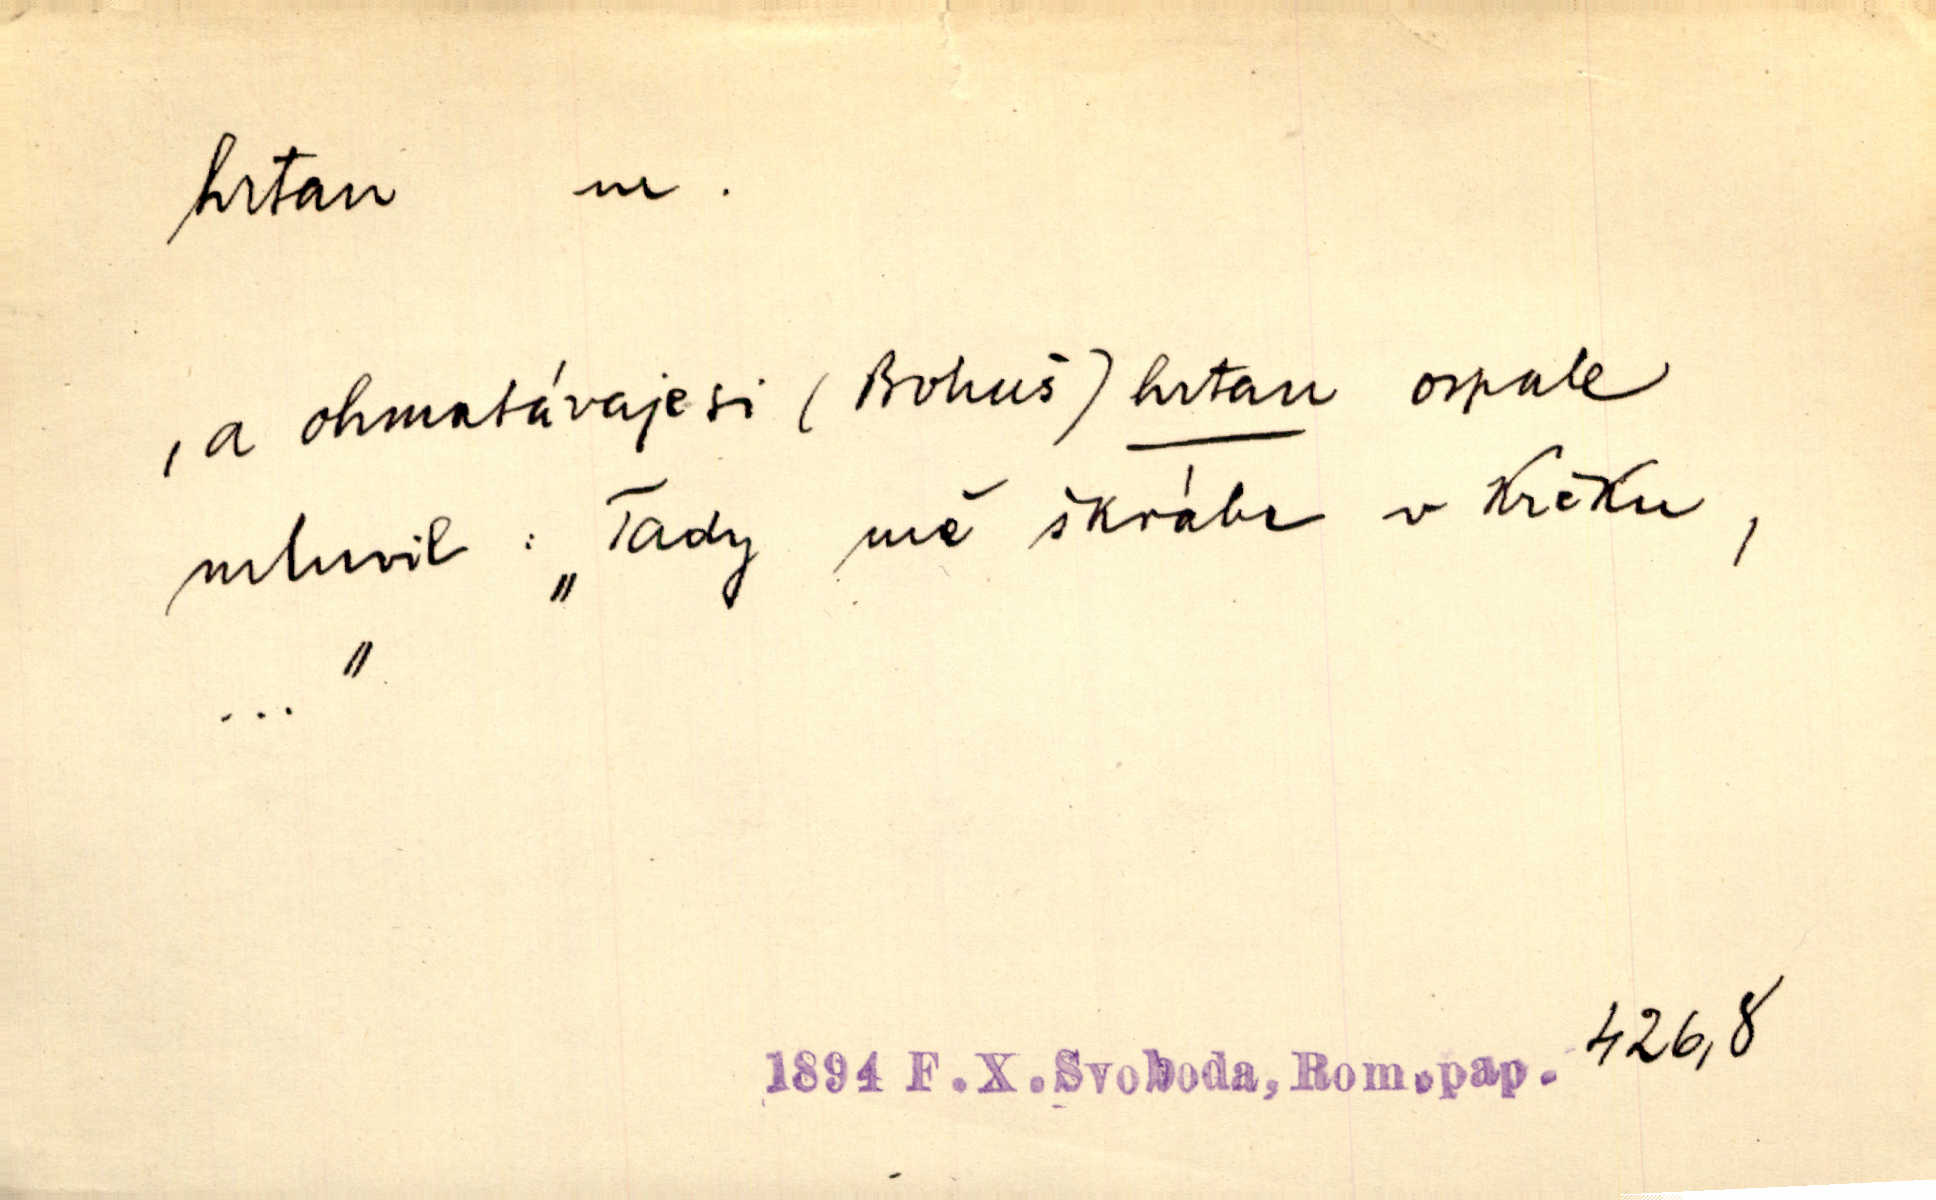 hrtan m.
, a ohmatávaje si (Bohuš) hrtan ospale
mluvil : „Tady mě škrábe v krčku,
..."
1894 F.X.Svoboda, Rom.pap. 426,8